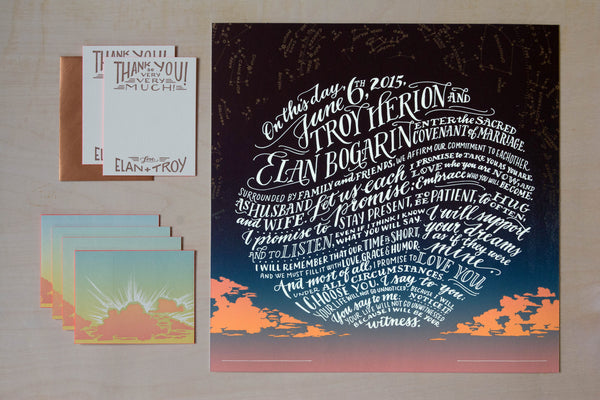 THANK YOU!
THANK YOU!
SO
VERY
VERY
MUCH!
Love
ELAN + TROY
On this day,
June 6th, 2015,
TROY HERION AND
ELAN BOGARIN
ENTER the SACRED
COVENANT of MARRIAGE.
SURROUNDED BY FAMILY and FRIENDS, WE AFFIRM OUR COMMITMENT TO EACH OTHER
AS HUSBAND and WIFE. Let us each
I PROMISE to TAKE YOU AS YOU ARE
LOVE who you are NOW, AND
Embrace WHO YOU WILL BECOME.
I promise to
STAY PRESENT, to BE PATIENT, to HUG OFTEN,
AND TO LISTEN, EVEN IF I THINK I KNOW
WHAT YOU WILL SAY.
I will support
your dreams
as if they were
mine
I WILL REMEMBER THAT OUR TIME IS SHORT,
AND WE MUST FILL IT WITH LOVE, GRACE & HUMOR.
And most of all, I PROMISE to LOVE YOU
UNDER ALL CIRCUMSTANCES.
I CHOOSE YOU. I say to you,
YOUR LIFE WILL NOT GO UNNOTICED, BECAUSE I WILL
NOTICE IT
You say to me: YOUR LIFE WILL NOT GO UNWITNESSED
BECAUSE I WILL BE YOUR
witness.